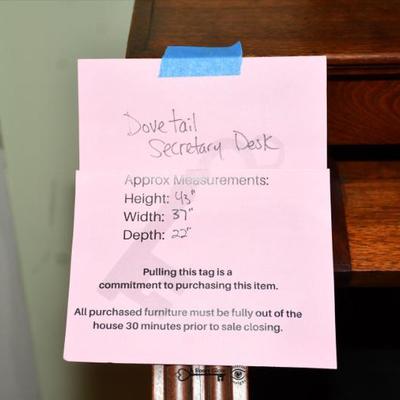 Dovetail
Secretary Desk
Approx Measurements:
Height: 43"
Width: 37"
Depth: 22"
Pulling this tag is a
commitment to purchasing this item.
All purchased furniture must be fully out of the
house 30 minutes prior to sale closing.